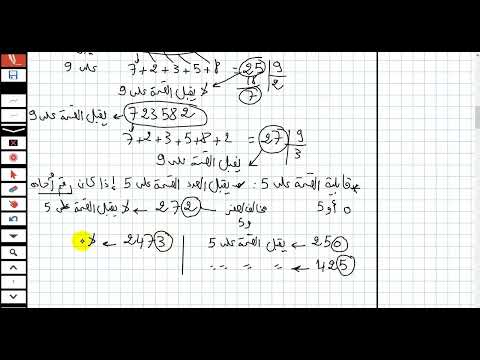 7+2+3+5+8 = 25 | 9
على 9 18 | 2
7
لا يقبل القسمة على 9
723582 ← يقبل القسمة على 9
7+2+3+5+8+2 = 27 | 9
3
يقبل القسمة على 9
قابلية القسمة على 5: يقبل العدد القسمة على 5 إذا كان رقم آحاده
0 أو 5
272 ← لا يقبل القسمة على 5
مخالف لصفر
و 5
250 ← يقبل القسمة على 5
2473 ← لا
425 ← " " "